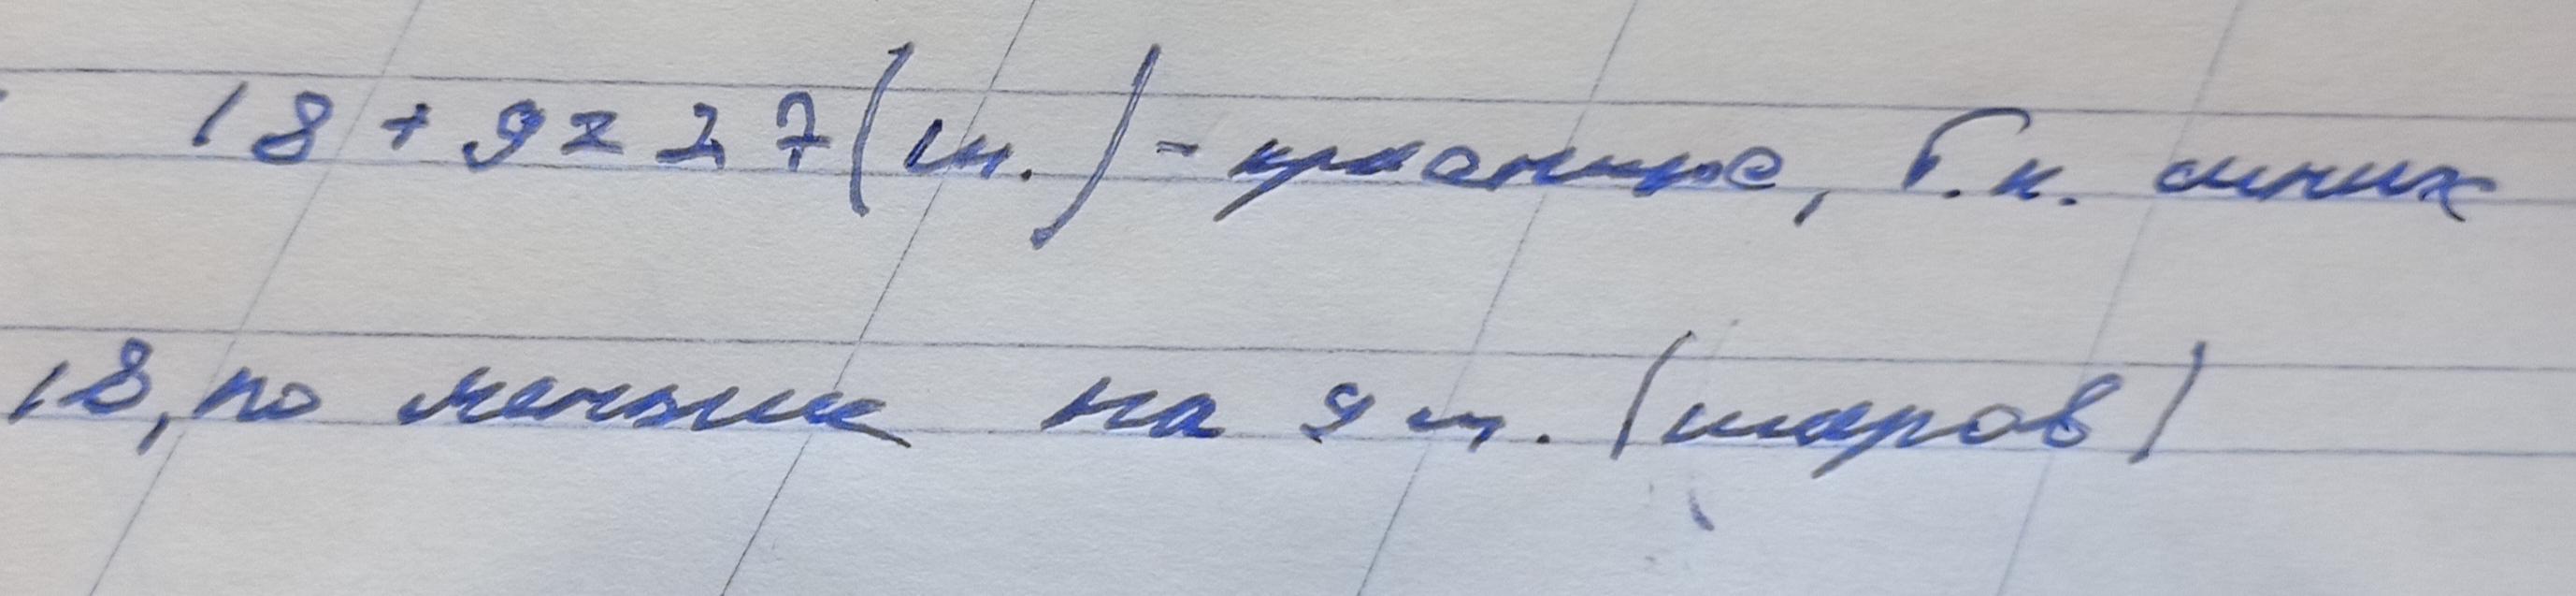 18 + 9 = 27 (ш.) - красные, т.к. синих
18, но меньше на 9 ш. (шаров)